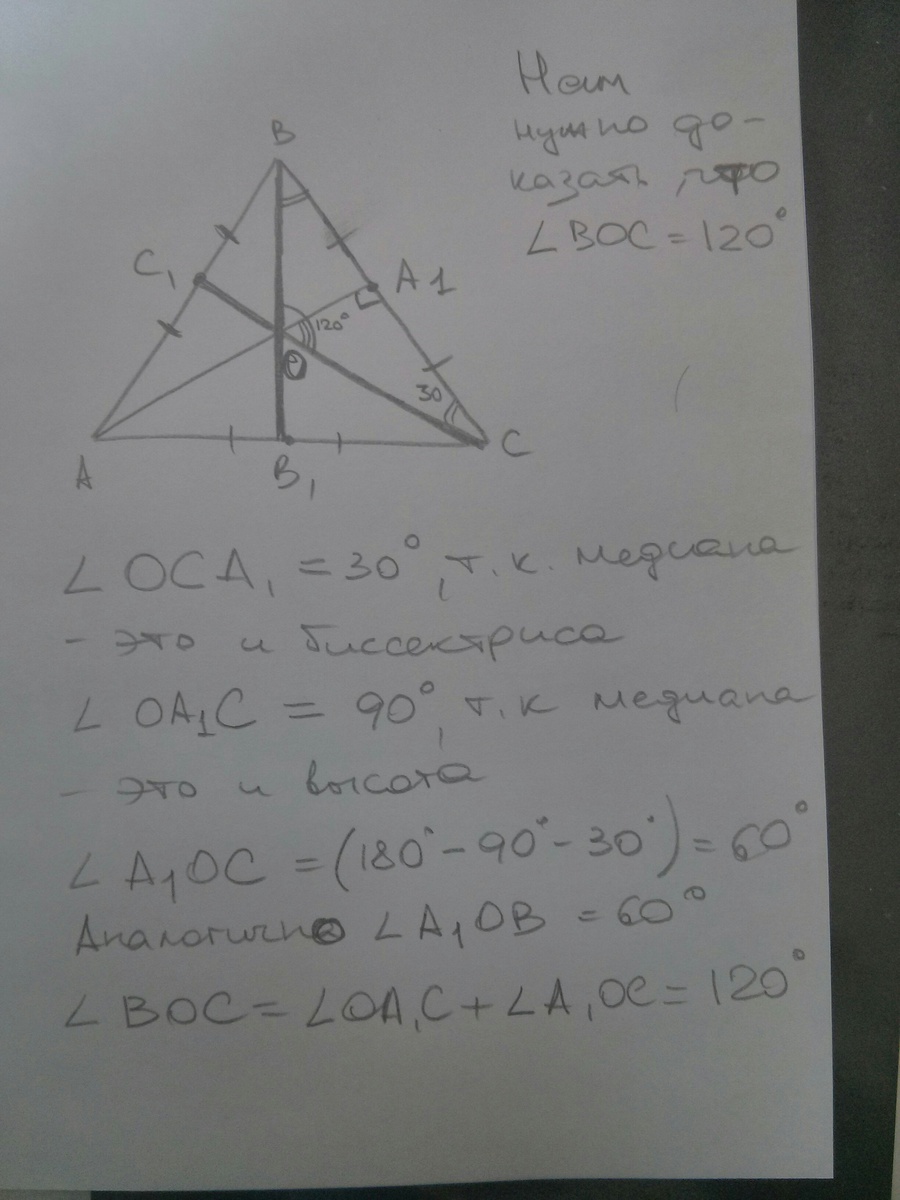 Нам
нужно до-
казать, что
∠BOC = 120°
B
C₁
A1
120°
O
30
A
B₁
C
∠ OCA₁ = 30°, т.к. медиана
- это и биссектриса
∠ OA₁C = 90°, т.к медиана
- это и высота
∠ A₁OC = (180° - 90° - 30°) = 60°
Аналогично ∠A₁OB = 60°
∠ BOC = ∠OA₁C + ∠A₁OC = 120°